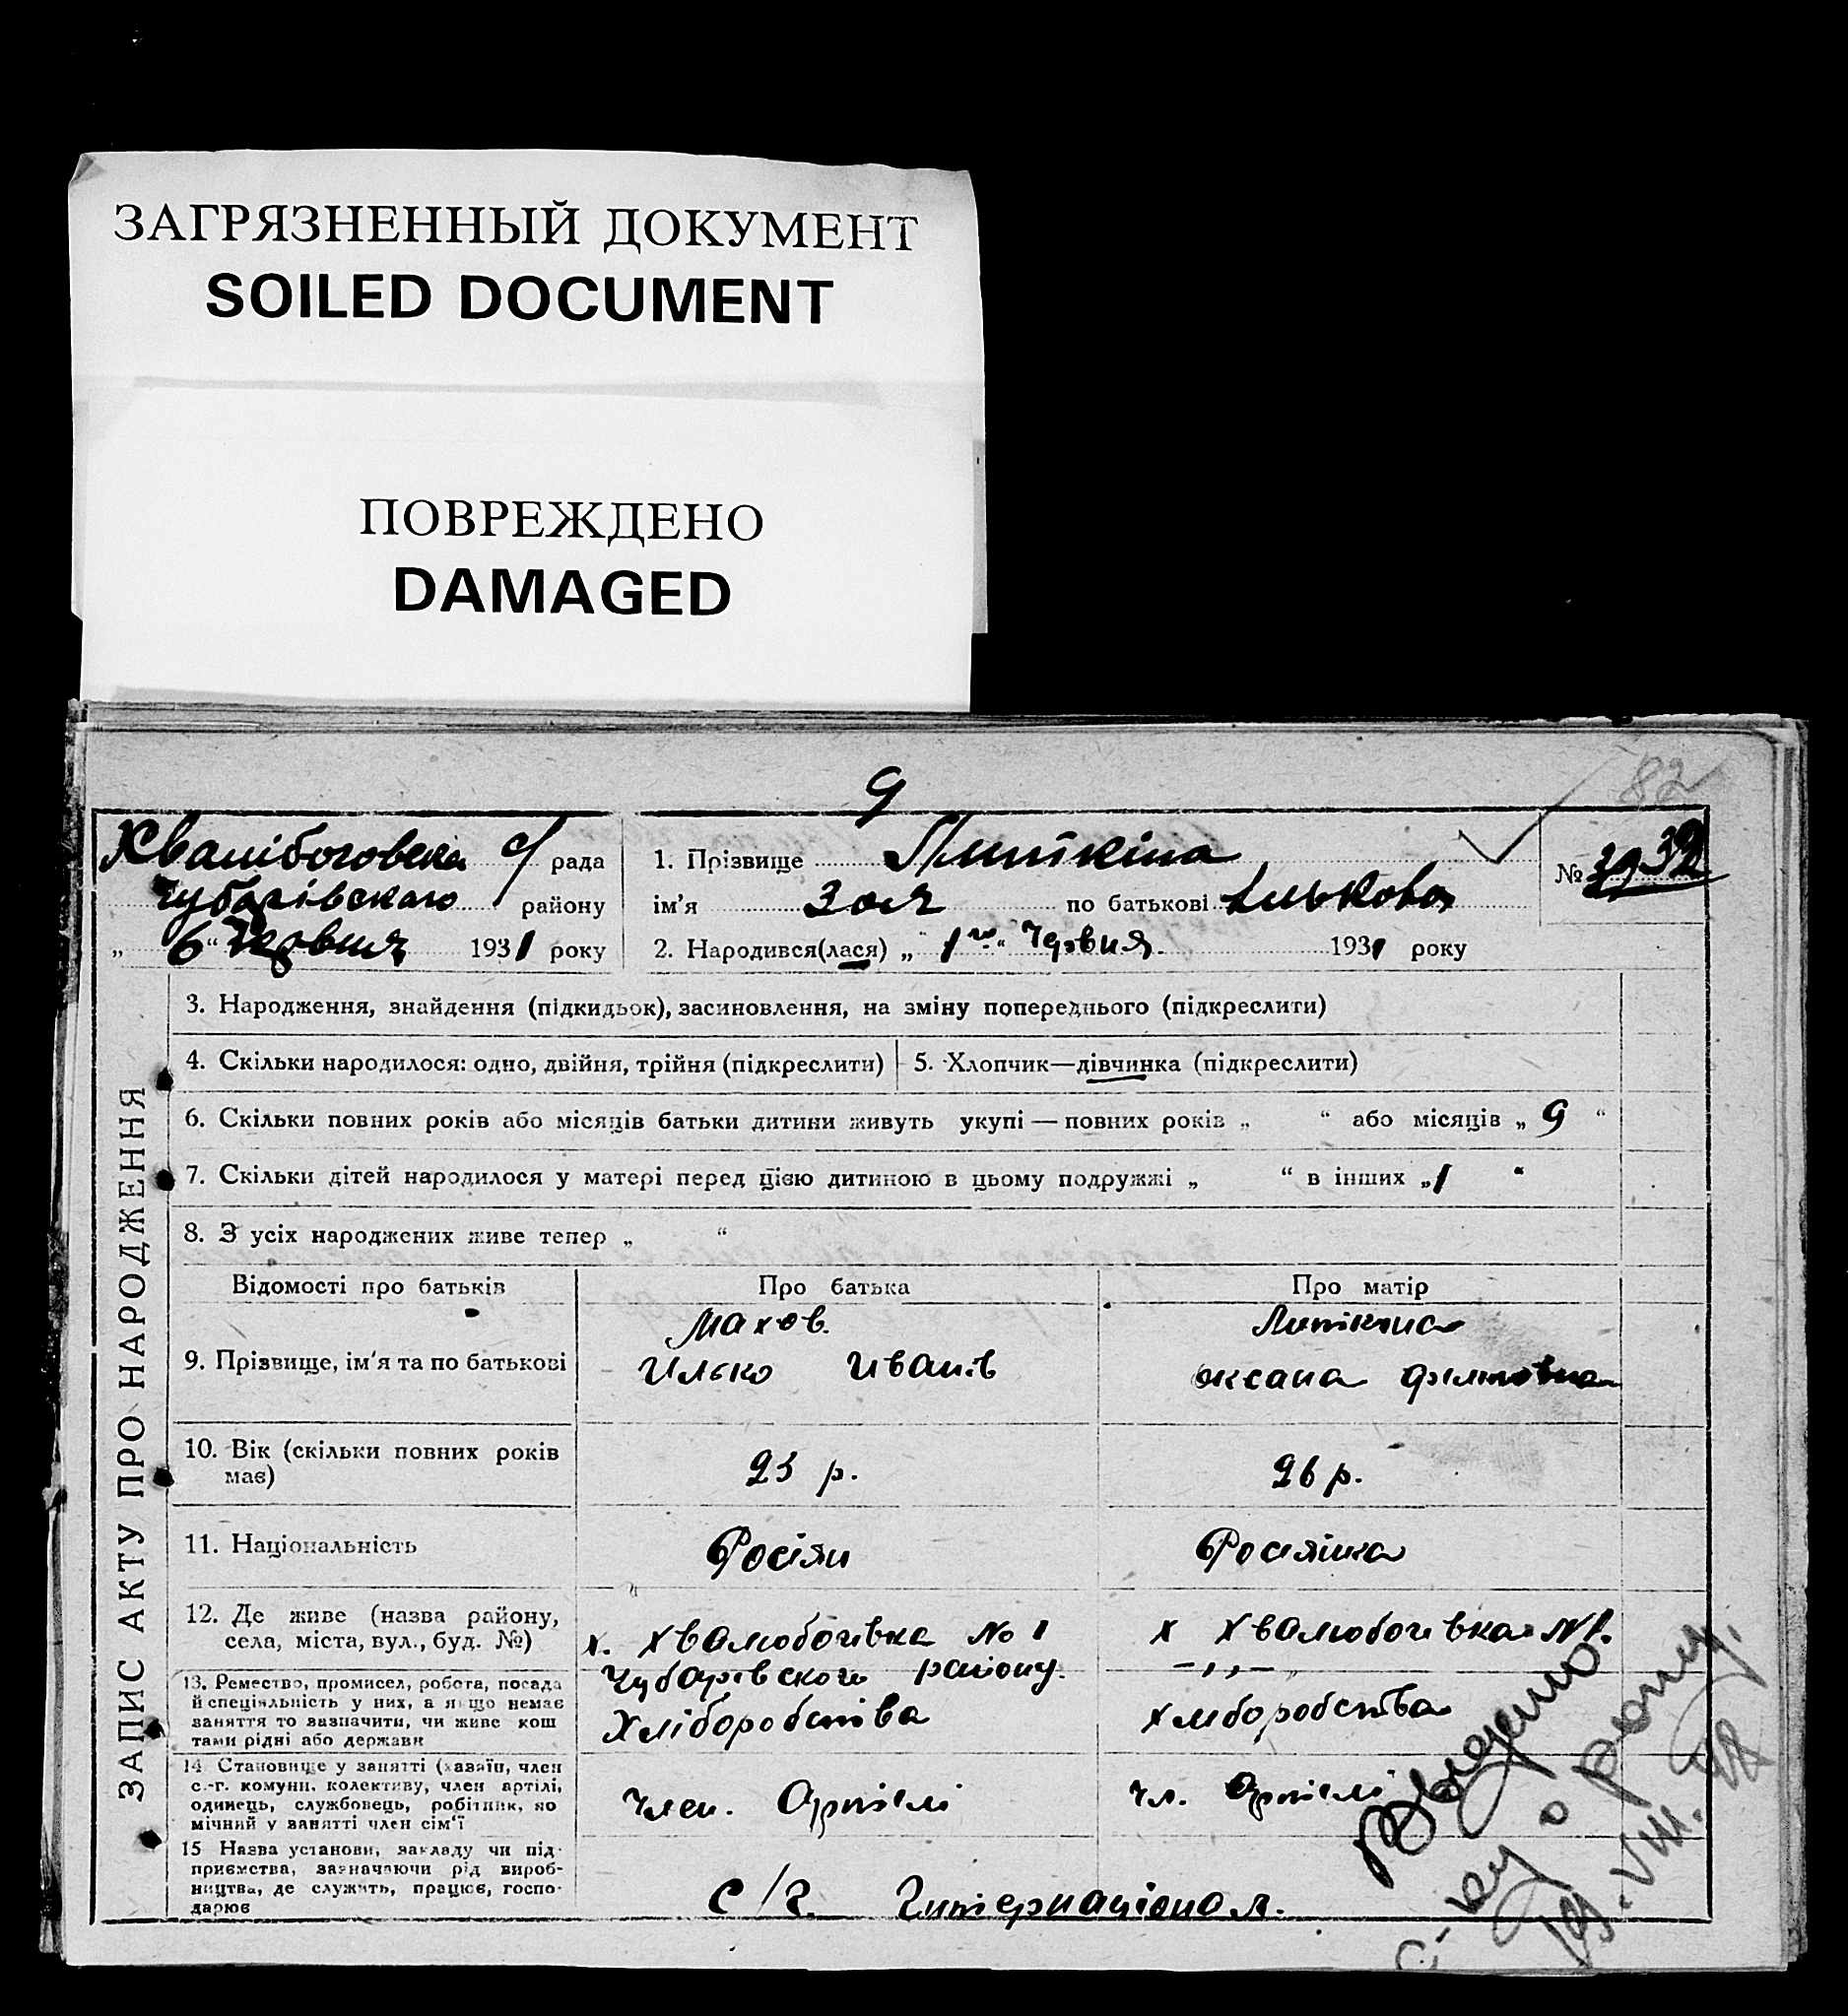 ЗАГРЯЗНЕННЫЙ ДОКУМЕНТ
SOILED DOCUMENT
ПОВРЕЖДЕНО
DAMAGED
9
82
с/ рада
Чубарівскаго району
„6“ Червня 1931 року
1. Прізвище Литкіна
ім'я Зоя по батькові Ильковa
2. Народився(лася) „1го“ Червня 1931 року
№ 39 32
ЗАПИС АКТУ ПРО НАРОДЖЕННЯ
3. Народження, знайдення (підкидьок), засиновлення, на зміну попереднього (підкреслити)
4. Скільки народилося: одно, двійня, трійня (підкреслити)
5. Хлопчик—дівчинка (підкреслити)
6. Скільки повних років або місяців батьки дитини живуть укупі — повних років „ “ або місяців „ 9 “
7. Скільки дітей народилося у матері перед цією дитиною в цьому подружжі „ “ в інших „ 1 “
8. З усіх народжених живе тепер „ “
Відомості про батьків
Про батька
Про матір
9. Прізвище, ім'я та по батькові
Махов.
Илько Иванів
Литкіна
Оксана
10. Вік (скільки повних років
має)
23 р.
26 р.
11. Національність
Росіян
Росиянка
12. Де живе (назва району,
села, міста, вул., буд. №)
х. Хвалюбогівка № 1
Чубарівского району.
х Хвалюбогівка № 1.
— „ —
13. Ремество, промисел, робота, посада
й спеціяльність у них, а якщо немає
заняття то зазначити, чи живе кош
тами рідні або держави
Хліборобства
Хліборобства
14 Становище у занятті (хазяїн, член
с.-г. комуни, колективу, член артілі,
одинець, службовець, робітник, по
мічний у занятті член сім'ї
Член. Артілі
Чл. Артілі
15 Назва установи, закладу чи під-
приємства, зазначаючи рід вироб-
ництва, де служить, працює, госпо-
дарює
С/г. Интернаціонал.
19.VIII.